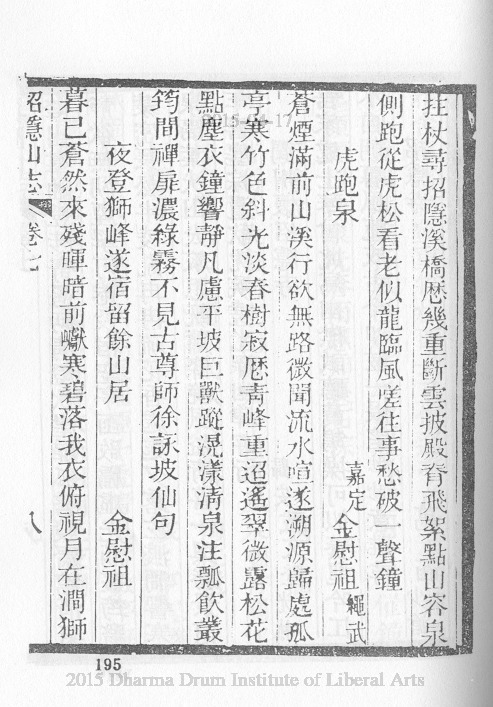 拄杖尋招隱溪橋歴幾重斷雲披殿脊飛絮點山容泉
側跑從虎松看老似龍臨風嗟往事愁破一聲鐘
虎跑泉 嘉定金慰祖繩武
蒼煙滿前山溪行欲無路微聞流水喧遂溯源歸處孤
亭寒竹色斜光淡春樹寂歴青峰重迢遙翠微露松花
點塵衣鐘響靜凡慮平坡巨獸蹤滉漾清泉注瓢飲叢
筠間禪扉濃綠霧不見古尊師徐詠坡仙句
夜登獅峰遂宿留餘山居 金慰祖
暮已蒼然來殘暉暗前巘寒碧落我衣俯視月在澗獅
招隱山志 卷七 八
195
2015 Dharma Drum Institute of Liberal Arts